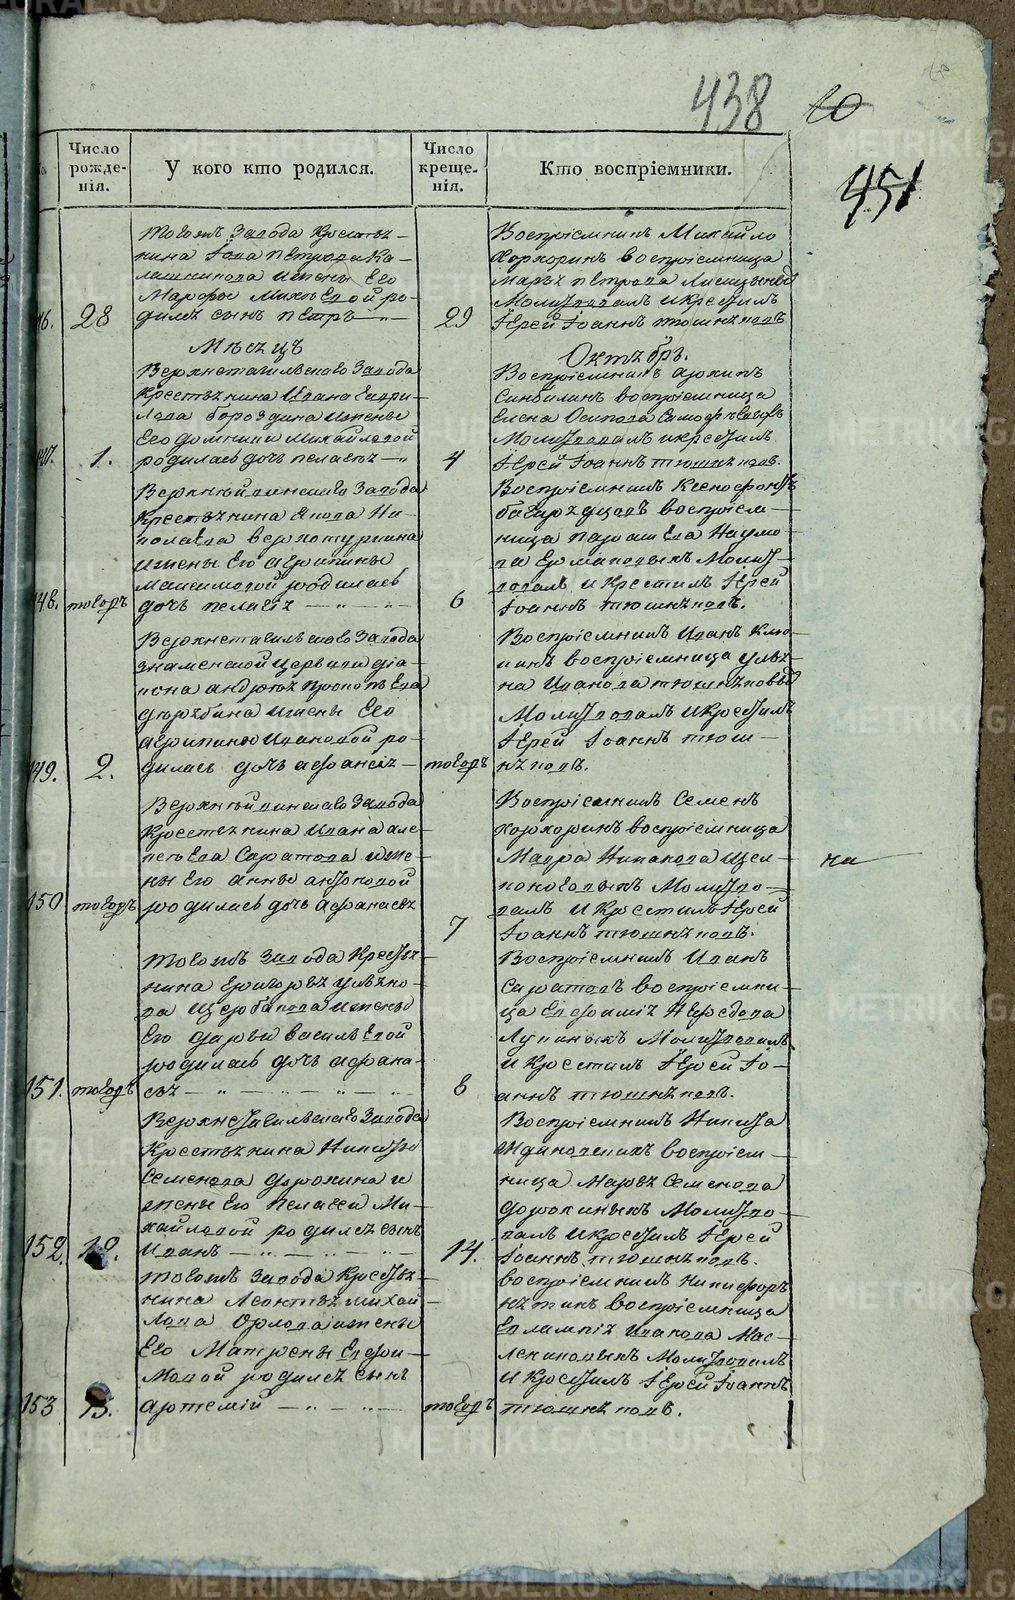 438
10
451
Число рожде-нія.
У кого кто родился.
Число креще-нія.
Кто воспріемники.
тогожъ Завода Крестья-
нина Іова Петрова Ка-
лашникова и жены Его
Марфы Михѣевой ро-
28
дился сынъ Петръ
29
Воспріемникъ Михайло
Хорхоринъ воспріемница
Марья Петрова
Молитвовалъ и крестилъ
Іерей Іоаннъ тюшняковъ
Мѣсяцъ
Октябрь.
Верхнетагильскаго Завода
Крестьянина Ивана Гаври-
лова бороздина и жены
Его домники Михайловой
147.
1.
родилась дочь пелагея
4
Воспріемникъ архипъ
воспріемница
Елена Осипова
Молитвовалъ и крестилъ
Іерей Іоаннъ тюшняковъ.
Верхнейвинскаго Завода
Крестьянина Якова Ни-
колаева верхотурцина
и жены Его агрипины
Максимовой родилась
148.
тогожъ
дочь пелагія
6
Воспріемникъ Ксенофонтъ
воспріем-
ница Параскева Наумо-
ва Ермаковыхъ Молит-
вовалъ и Крестилъ Іерей
Іоаннъ тюшняковъ.
Верхнетагильскаго Завода
знаменской церкви діа-
кона андрея прокопьева
и жены Его
агрипины Ивановой ро-
149.
2.
дилась дочь афанасія
тогожъ
Воспріемникъ Иванъ Клю-
кинъ воспріемница улья-
на Иванова тюшняковыхъ
Молитвовалъ и крестилъ
Іерей Іоаннъ тюш-
няковъ.
Верхнейвинскаго Завода
Крестьянина Ивана але-
ксѣева Саратова и же-
ны Его анны антоновой
150
тогожъ
родилась дочь афанасья
7
Воспріемникъ Семенъ
хорхоринъ воспріемница
Мавра Никанова Щел-
коноговыхъ Молитво-
валъ и Крестилъ Іерей
Іоаннъ тюшняковъ.
на
тогожъ Завода Крестья-
нина Григорья ульяно-
ва Щербакова и жены
Его дарьи васильевой
родилась дочь афана-
151.
тогожъ
сья
8
Воспріемникъ Иванъ
Саратовъ воспріемни-
ца Евфимія Нефедова
Лупиныхъ Молитвовалъ
и Крестилъ Іерей Іо-
аннъ тюшняковъ.
Верхнетагильскаго Завода
Крестьянина Никиты
Семенова дорохина и
жены Его пелагеи Ми-
хайловой родился сынъ
152.
12.
Иванъ
14.
Воспріемникъ Никита
воспріем-
ница Марья Семенова
дорохиныхъ Молитво-
валъ и крестилъ Іерей
Іоаннъ тюшняковъ.
тогожъ Завода Крестья-
нина Леонтья михай-
лова Орлова и жены
Его Матроны Евфи-
мовой родился сынъ
153
13.
артемій
тогожъ
воспріемникъ никифоръ
воспріемница
Евлампія Иванова Мас-
лениковыхъ Молитвовалъ
и Крестилъ Іерей Іоаннъ
тюшняковъ.
METRIKI.GASO-URAL.RU